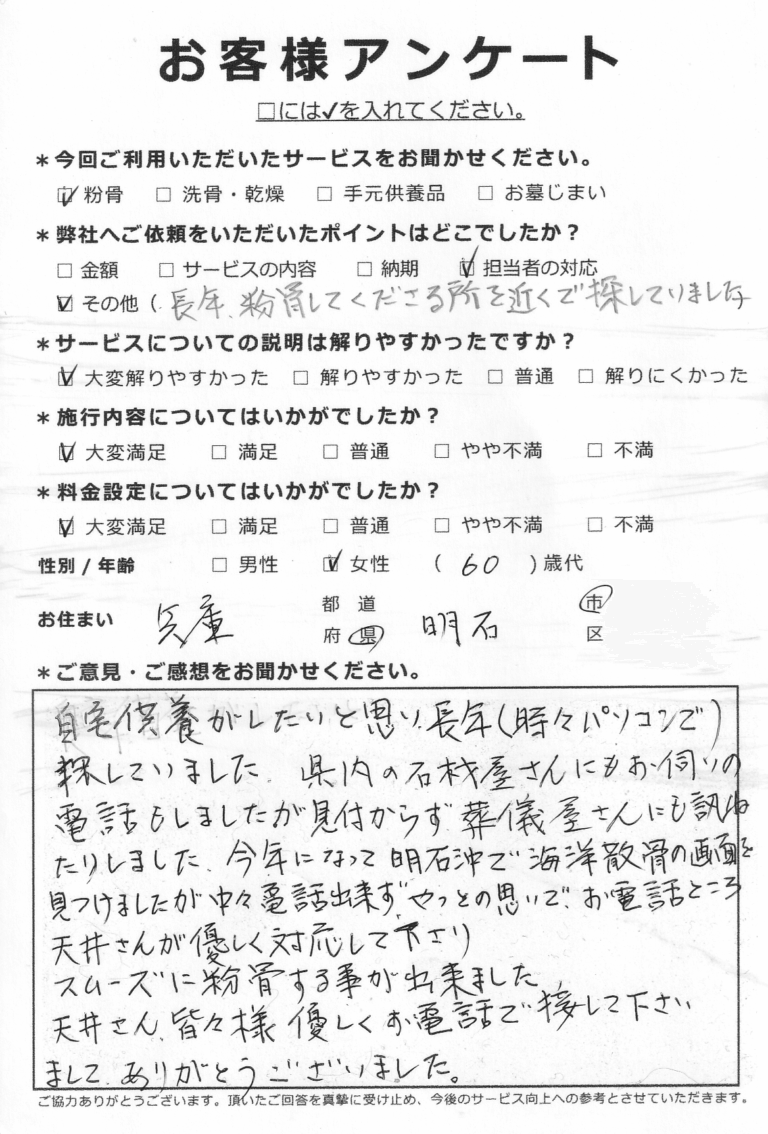 お客様アンケート
□には✓を入れてください。
＊今回ご利用いただいたサービスをお聞かせください。
☑ 粉骨 □ 洗骨・乾燥 □ 手元供養品 □ お墓じまい
＊弊社へご依頼をいただいたポイントはどこでしたか？
□ 金額 □ サービスの内容 □ 納期 ☑ 担当者の対応
☑ その他（ 長年、粉骨してくださる所を近くで探していました
＊サービスについての説明は解りやすかったですか？
☑ 大変解りやすかった □ 解りやすかった □ 普通 □ 解りにくかった
＊施行内容についてはいかがでしたか？
☑ 大変満足 □ 満足 □ 普通 □ やや不満 □ 不満
＊料金設定についてはいかがでしたか？
☑ 大変満足 □ 満足 □ 普通 □ やや不満 □ 不満
性別 / 年齢 □ 男性 ☑ 女性 （ 60 ）歳代
都 道 市
お住まい 兵庫 明石
府 県 区
＊ご意見・ご感想をお聞かせください。
自宅供養がしたいと思い、長年(時々パソコンで)
探していました、県内の石材屋さんにもお伺いの
電話もしましたが見付からず、葬儀屋さんにも訊ね
たりしました、今年になって明石沖で海洋散骨の画面を
見つけましたが中々電話出来ず、やっとの思いで、お電話ところ
天井さんが優しく対応して下さり
スムーズに粉骨する事が出来ました
天井さん、皆々様 優しくお電話で接して下さい
まして、ありがとうございました。
ご協力ありがとうございます。頂いたご回答を真摯に受け止め、今後のサービス向上への参考とさせていただきます。